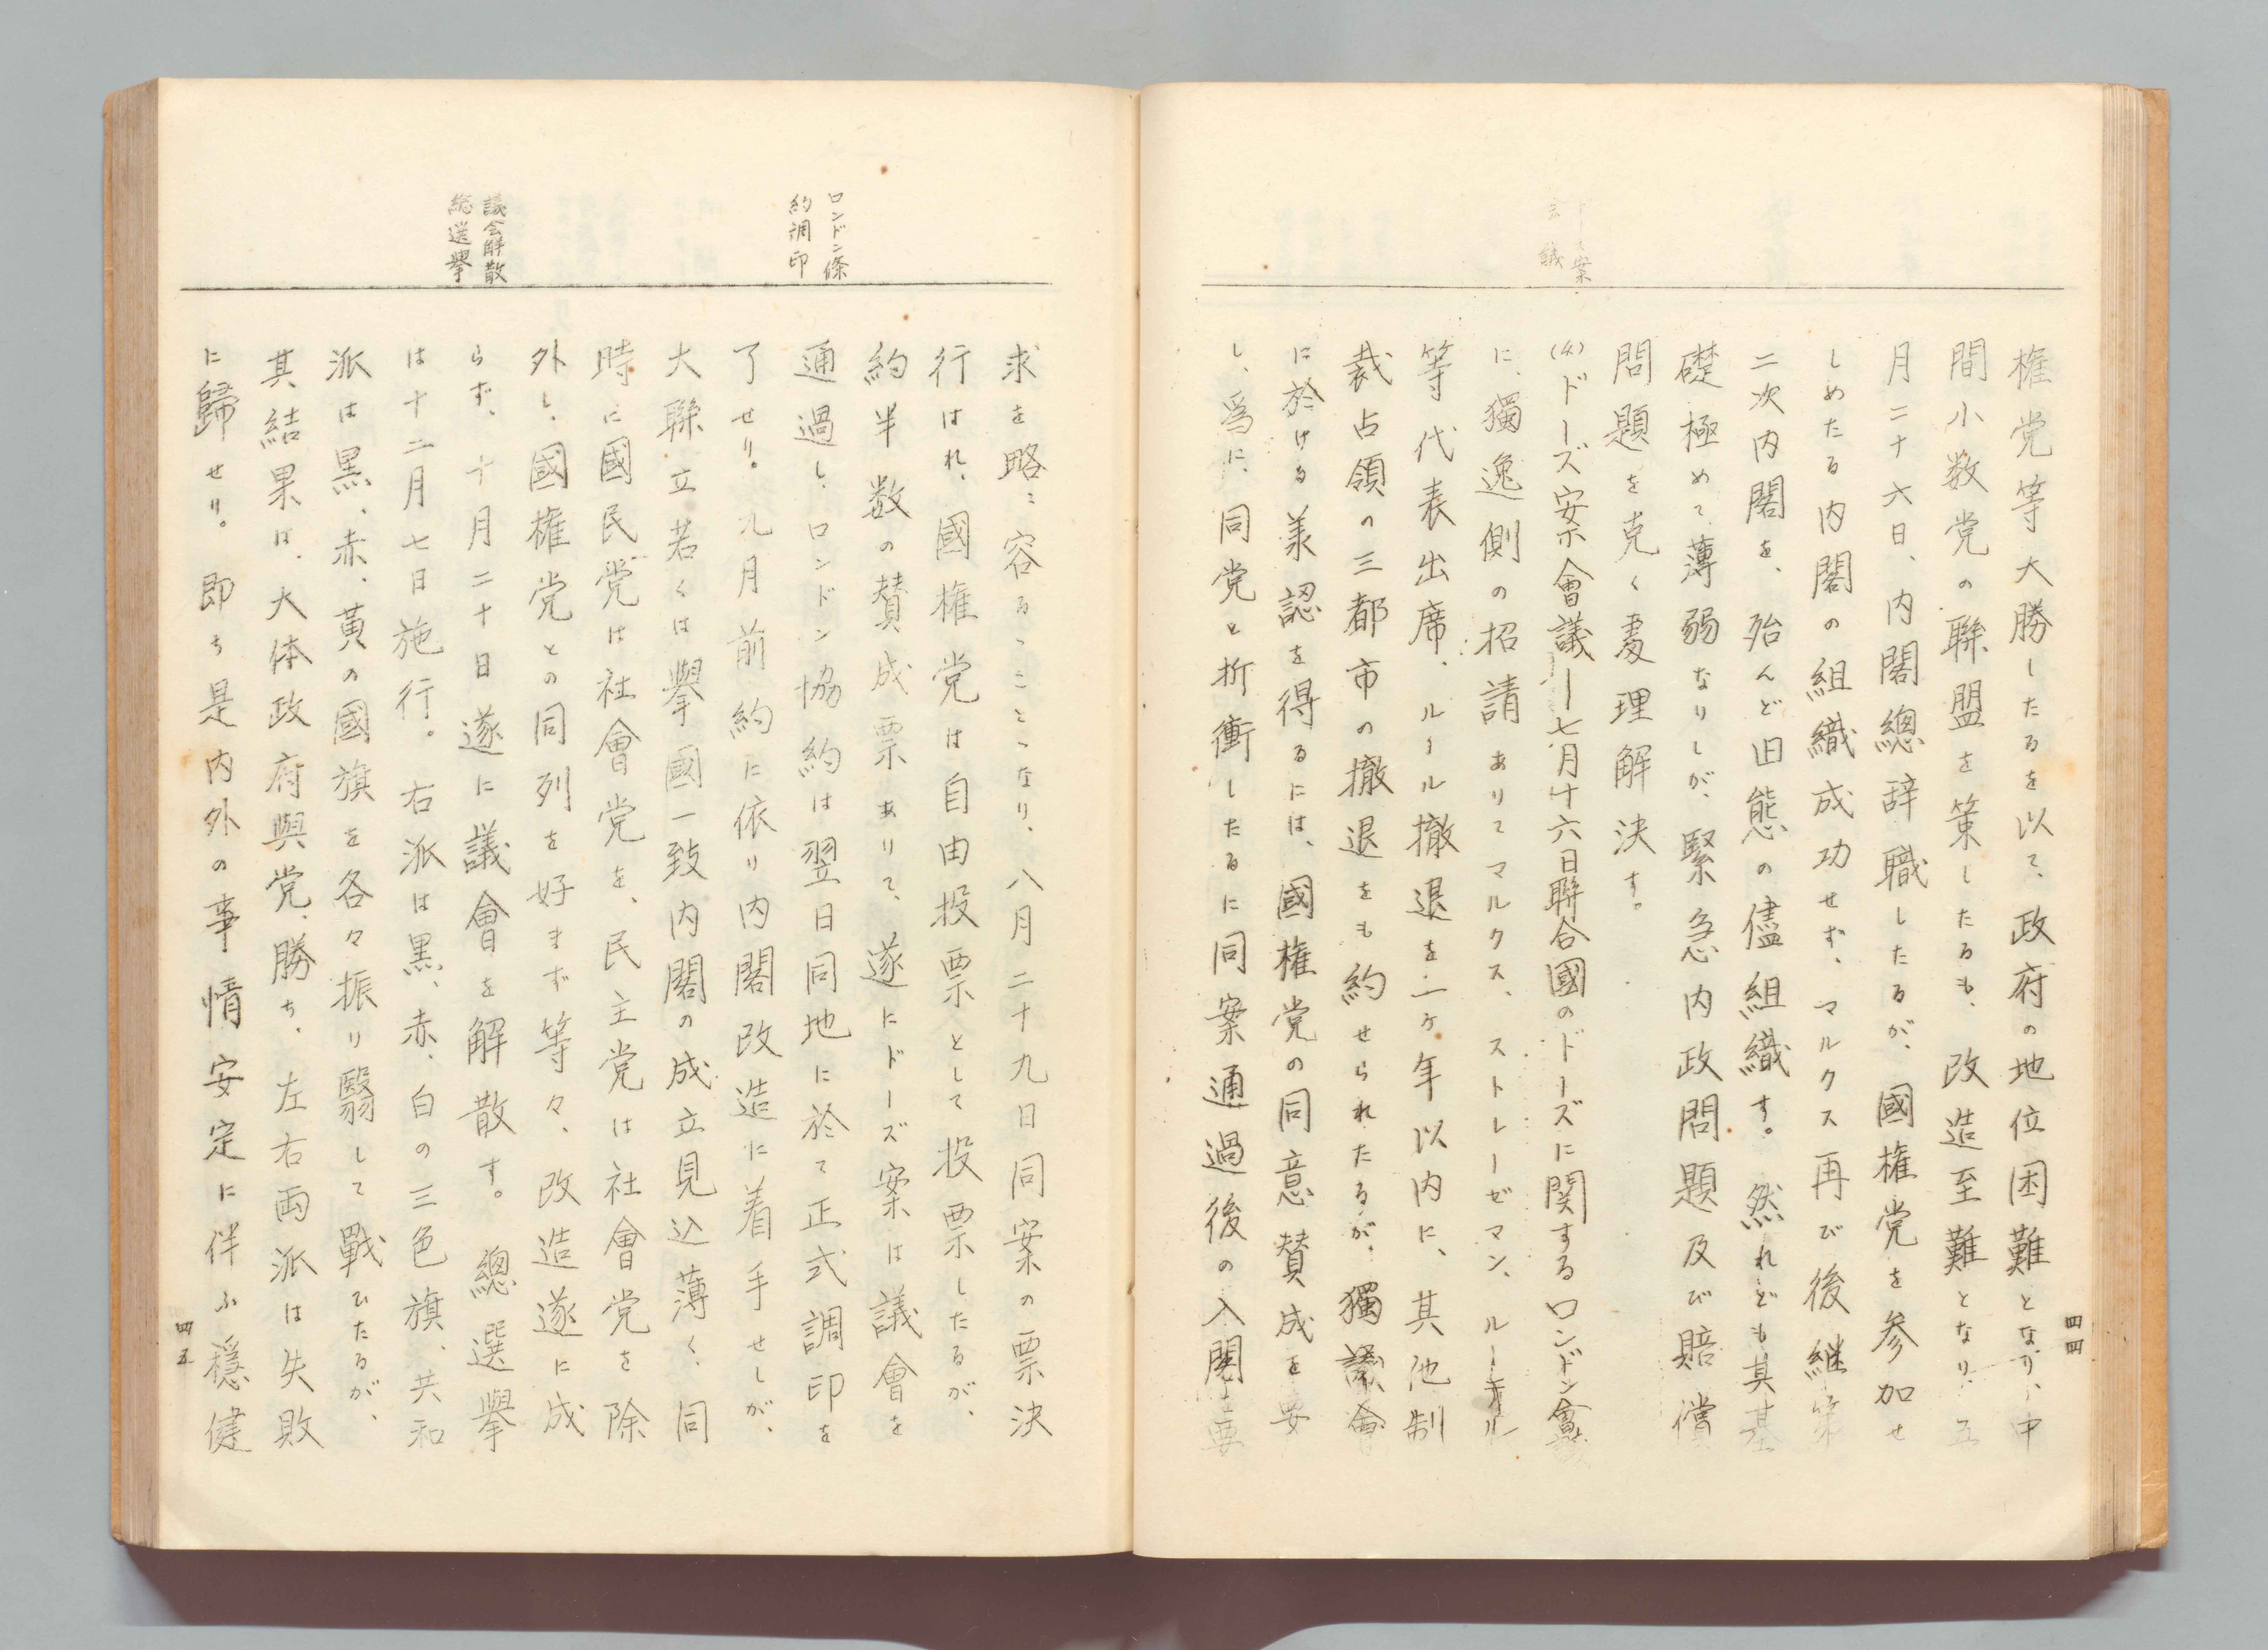 四四
権党等大勝したるを以て、政府の地位困難となり、中
間小数党の聯盟を策したるも、改造至難となり、五
月二十六日、内閣總辞職したるが、國権党を参加せ
しめたる内閣の組織成功せず、マルクス再び後継第
二次内閣を、殆んど旧態の儘組織す。然れども其基
礎極めて薄弱なりしが、緊急内政問題及び賠償
問題を克く処理解決す。
ドーズ案
会議
(4)ドーズ案會議ー七月十六日聯合國のドーズに関するロンドン會議
に、獨逸側の招請ありてマルクス、ストレーゼマン、ルーテル
等代表出席、ルール撤退を一ヶ年以内に、其他制
裁占領の三都市の撤退をも約せられたるが、獨議會
に於ける承認を得るには、國権党の同意賛成を要
し、爲に、同党と折衝したるに同案通過後の入閣要
求を略〻容るゝことゝなり、八月二十九日同案の票決
行はれ、國権党は自由投票として投票したるが、
ロンドン條
約調印
約半数の賛成票ありて、遂にドーズ案は議會を
通過し、ロンドン協約は翌日同地に於て正式調印を
了せり。九月前約に依り内閣改造に着手せしが、
大聯立若くは擧國一致内閣の成立見込薄く、同
時に國民党は社會党を、民主党は社會党を除
外し、國権党との同列を好まず等々、改造遂に成
議会解散
総選挙
らず、十月二十日遂に議會を解散す。總選擧
は十二月七日施行。右派は黒、赤、白の三色旗、共和
派は黒、赤、黄の國旗を各々振り翳して戰ひたるが、
其結果は、大体政府與党、勝ち、左右両派は失敗
に歸せり。即ち是内外の事情安定に伴ふ穏健
四五